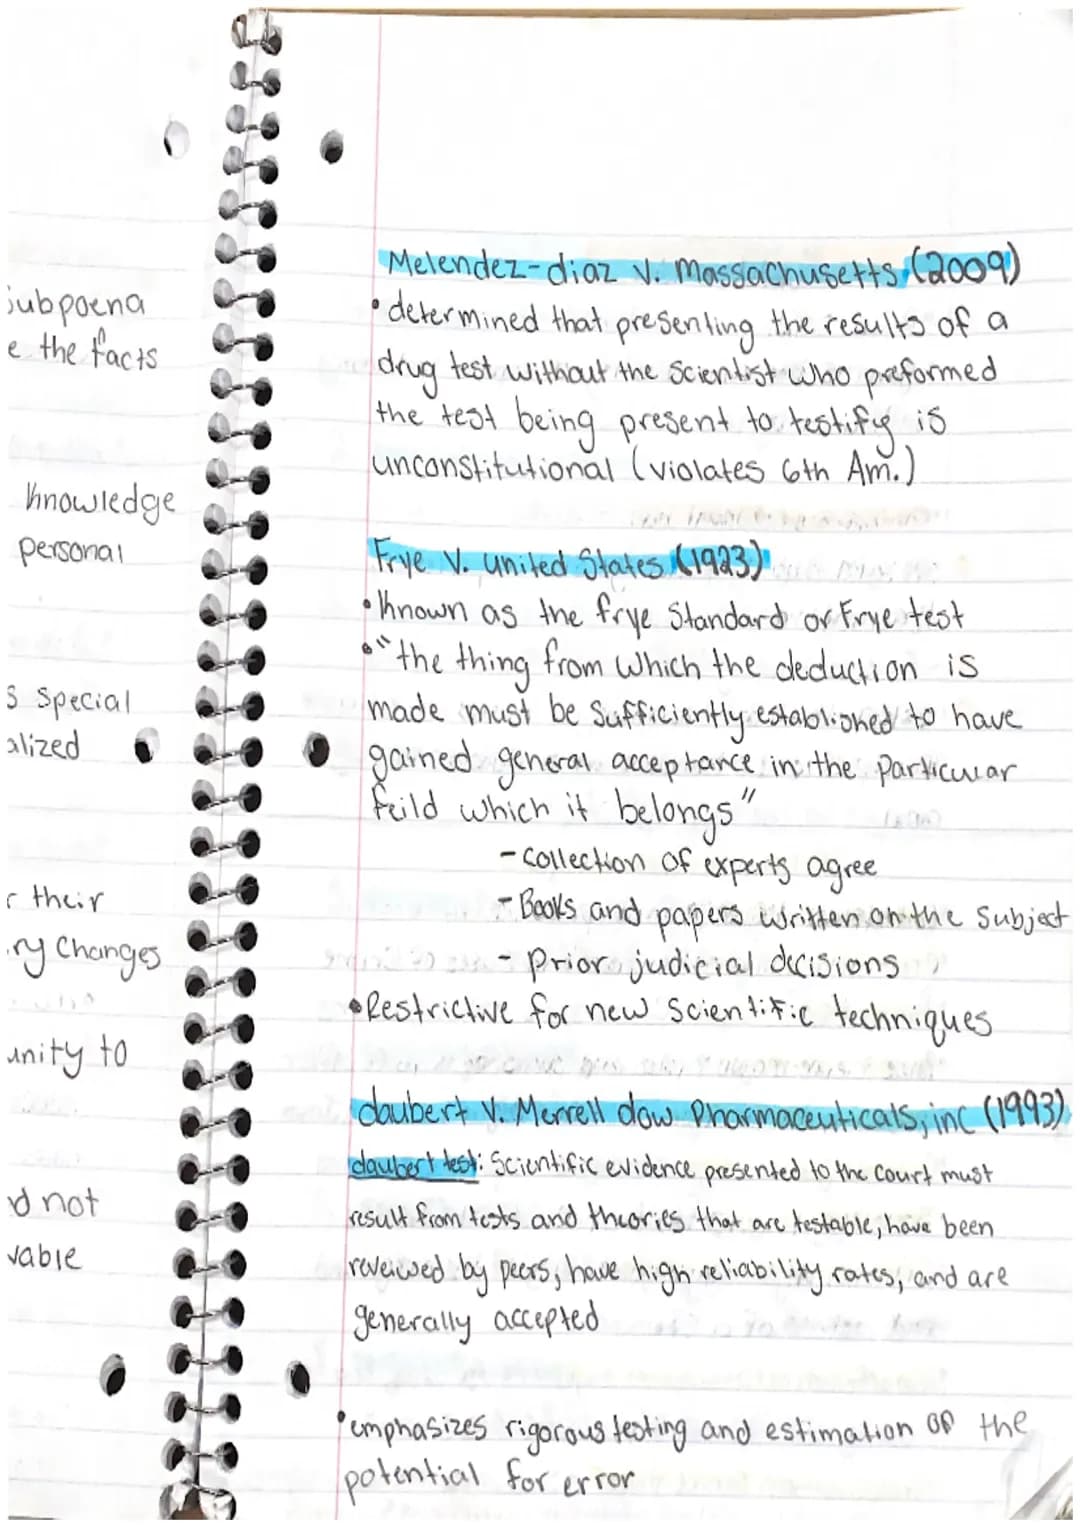 Subpoena
e the facts
knowledge
personal
s special
alized
r their
ry changes
unity to
d not
vable
Melendez-diaz v. Massachusetts (2009)
• determined that presenting the results of a
drug test without the scientist who preformed
the test being present to testify is
unconstitutional (violates 6th Am.)
Frye v. united States (1923)
• Known as the frye Standard or Frye test
• "the thing from which the deduction is
made must be sufficiently established to have
gained general acceptance in the particular
feild which it belongs"
- collection of experts agree
- Books and papers written on the subject
- prior judicial decisions
• Restrictive for new scientific techniques
daubert v. Merrell dow Pharmaceuticals, inc (1993)
daubert test: Scientific evidence presented to the court must
result from tests and theories that are testable, have been
reveiwed by peers, have high reliability rates, and are
generally accepted
• emphasizes rigorous testing and estimation of the
potential for error